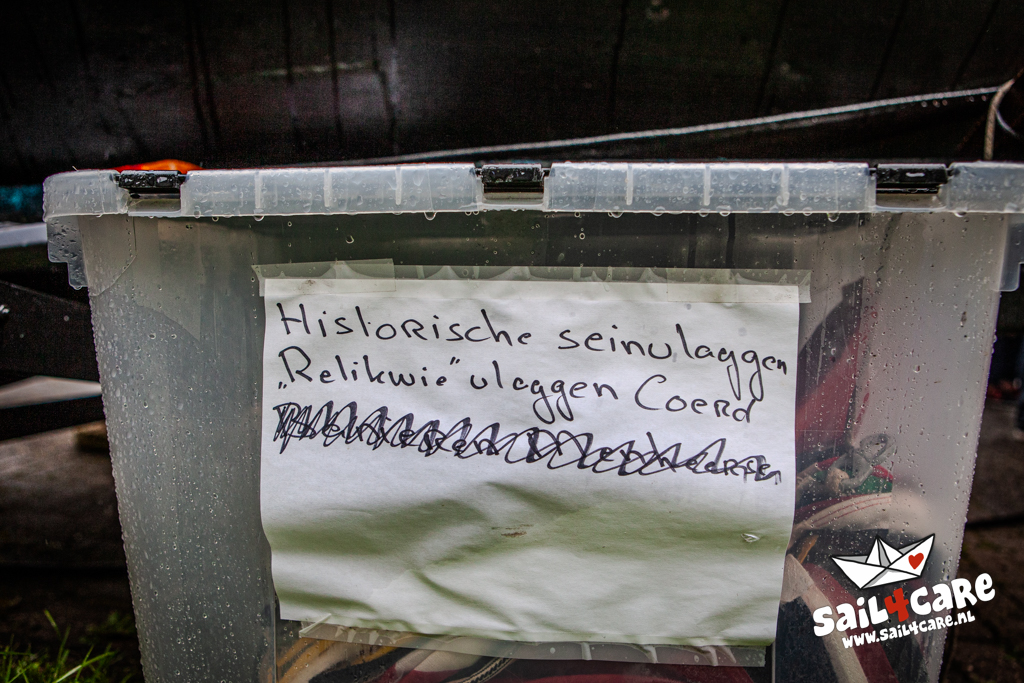 Historische seinvlaggen
„Relikwie" vlaggen Coerd
SAIL4CARE
WWW.SAIL4CARE.NL